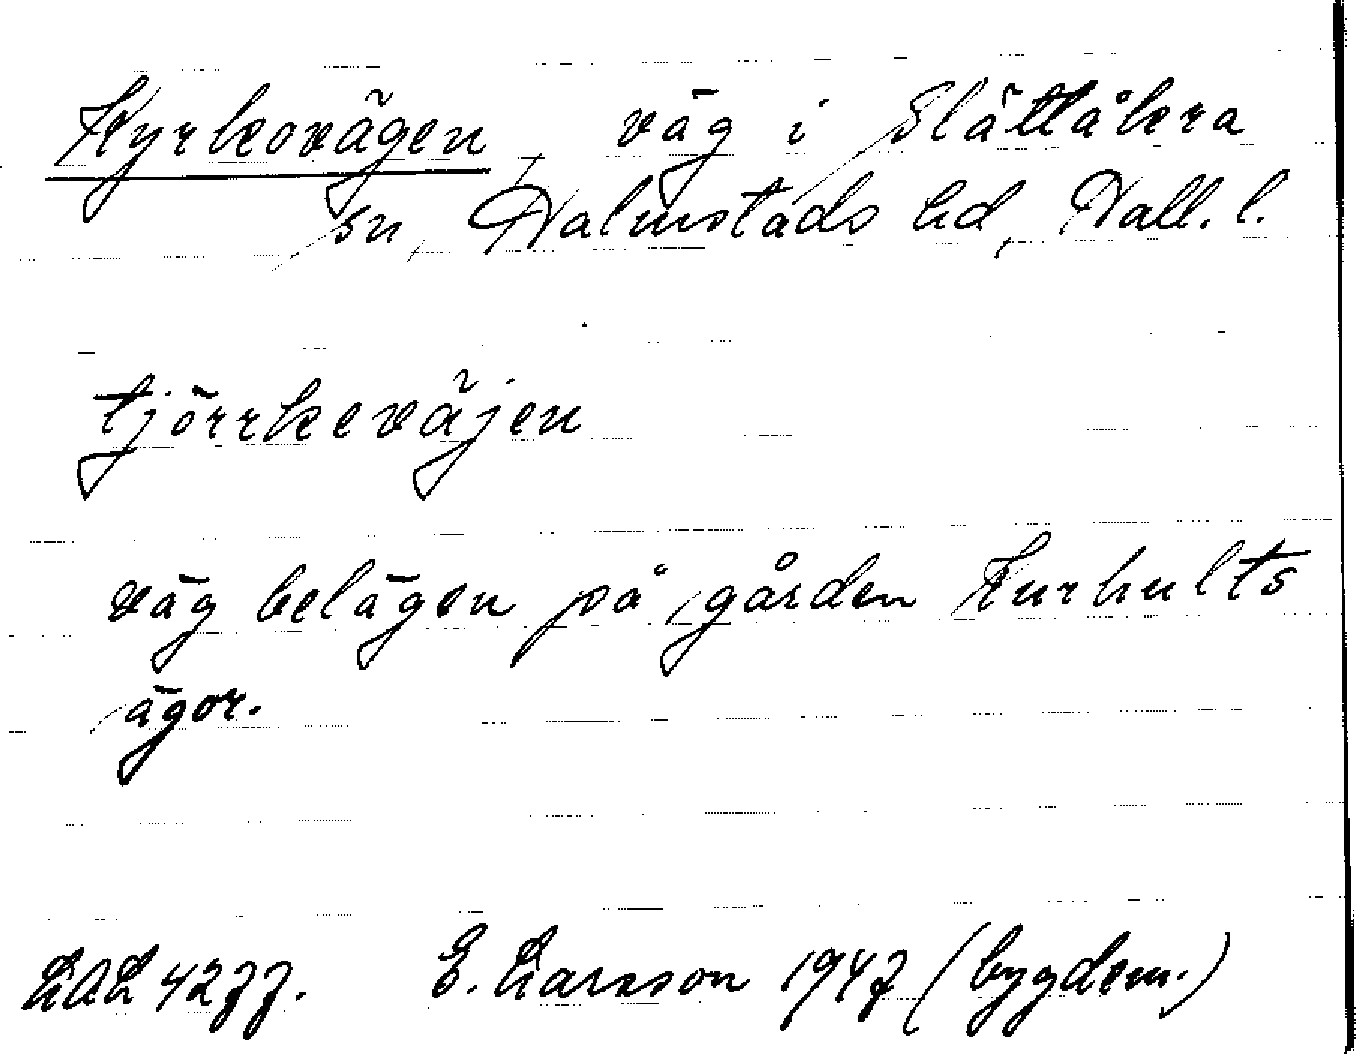 Kyrkovägen, väg i Slättåkra
sn, Halmstads hd, Hall. l.
tjörrkeväjen
väg belägen på gården Kurhults
ägor.
LAL 4277. E. Larsson 1947 (bygdem.)